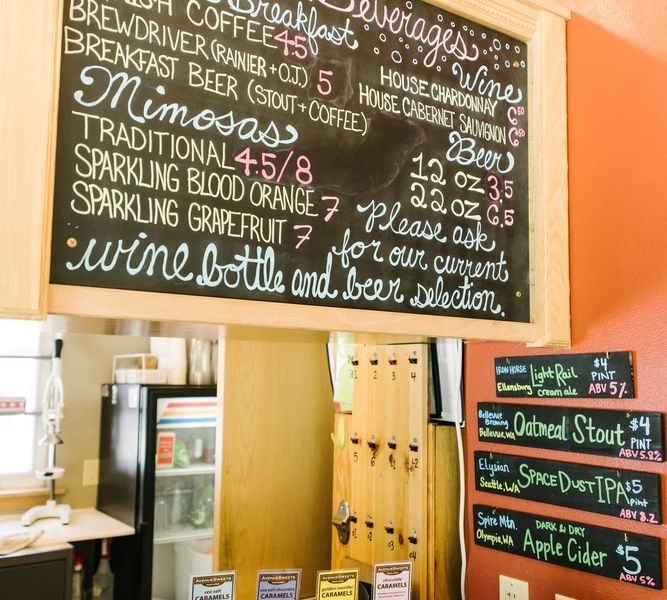 Beverages
Breakfast
COFFEE 4.5
BREWDRIVER (RAINIER + O.J.) 5
BREAKFAST BEER (STOUT + COFFEE)
Mimosas
TRADITIONAL 4.5/8
SPARKLING BLOOD ORANGE 7
SPARKLING GRAPEFRUIT 7
Wine
HOUSE CHARDONNAY 6.50
HOUSE CABERNET SAUVIGNON 6.50
Beer
12 OZ 3.5
22 OZ 6.5
Please ask
for our current
wine bottle and beer selection.
IRON HORSE
Ellensburg
Light Rail
cream ale
$4
PINT
ABV 5%
Bellevue
Brewing
Bellevue, WA
Oatmeal Stout
$4
PINT
ABV 5.8%
Elysian
Seattle, WA
SPACE DUST IPA
$5
pint
ABV 8.2
Spire Mtn.
Olympia, WA
DARK & DRY
Apple Cider
$5
ABV 5%
1 2 3 4
AVENUESWEETS
sea salt
CARAMELS
AVENUESWEETS
CARAMELS
AVENUESWEETS
CARAMELS
AVENUESWEETS
chocolate
CARAMELS